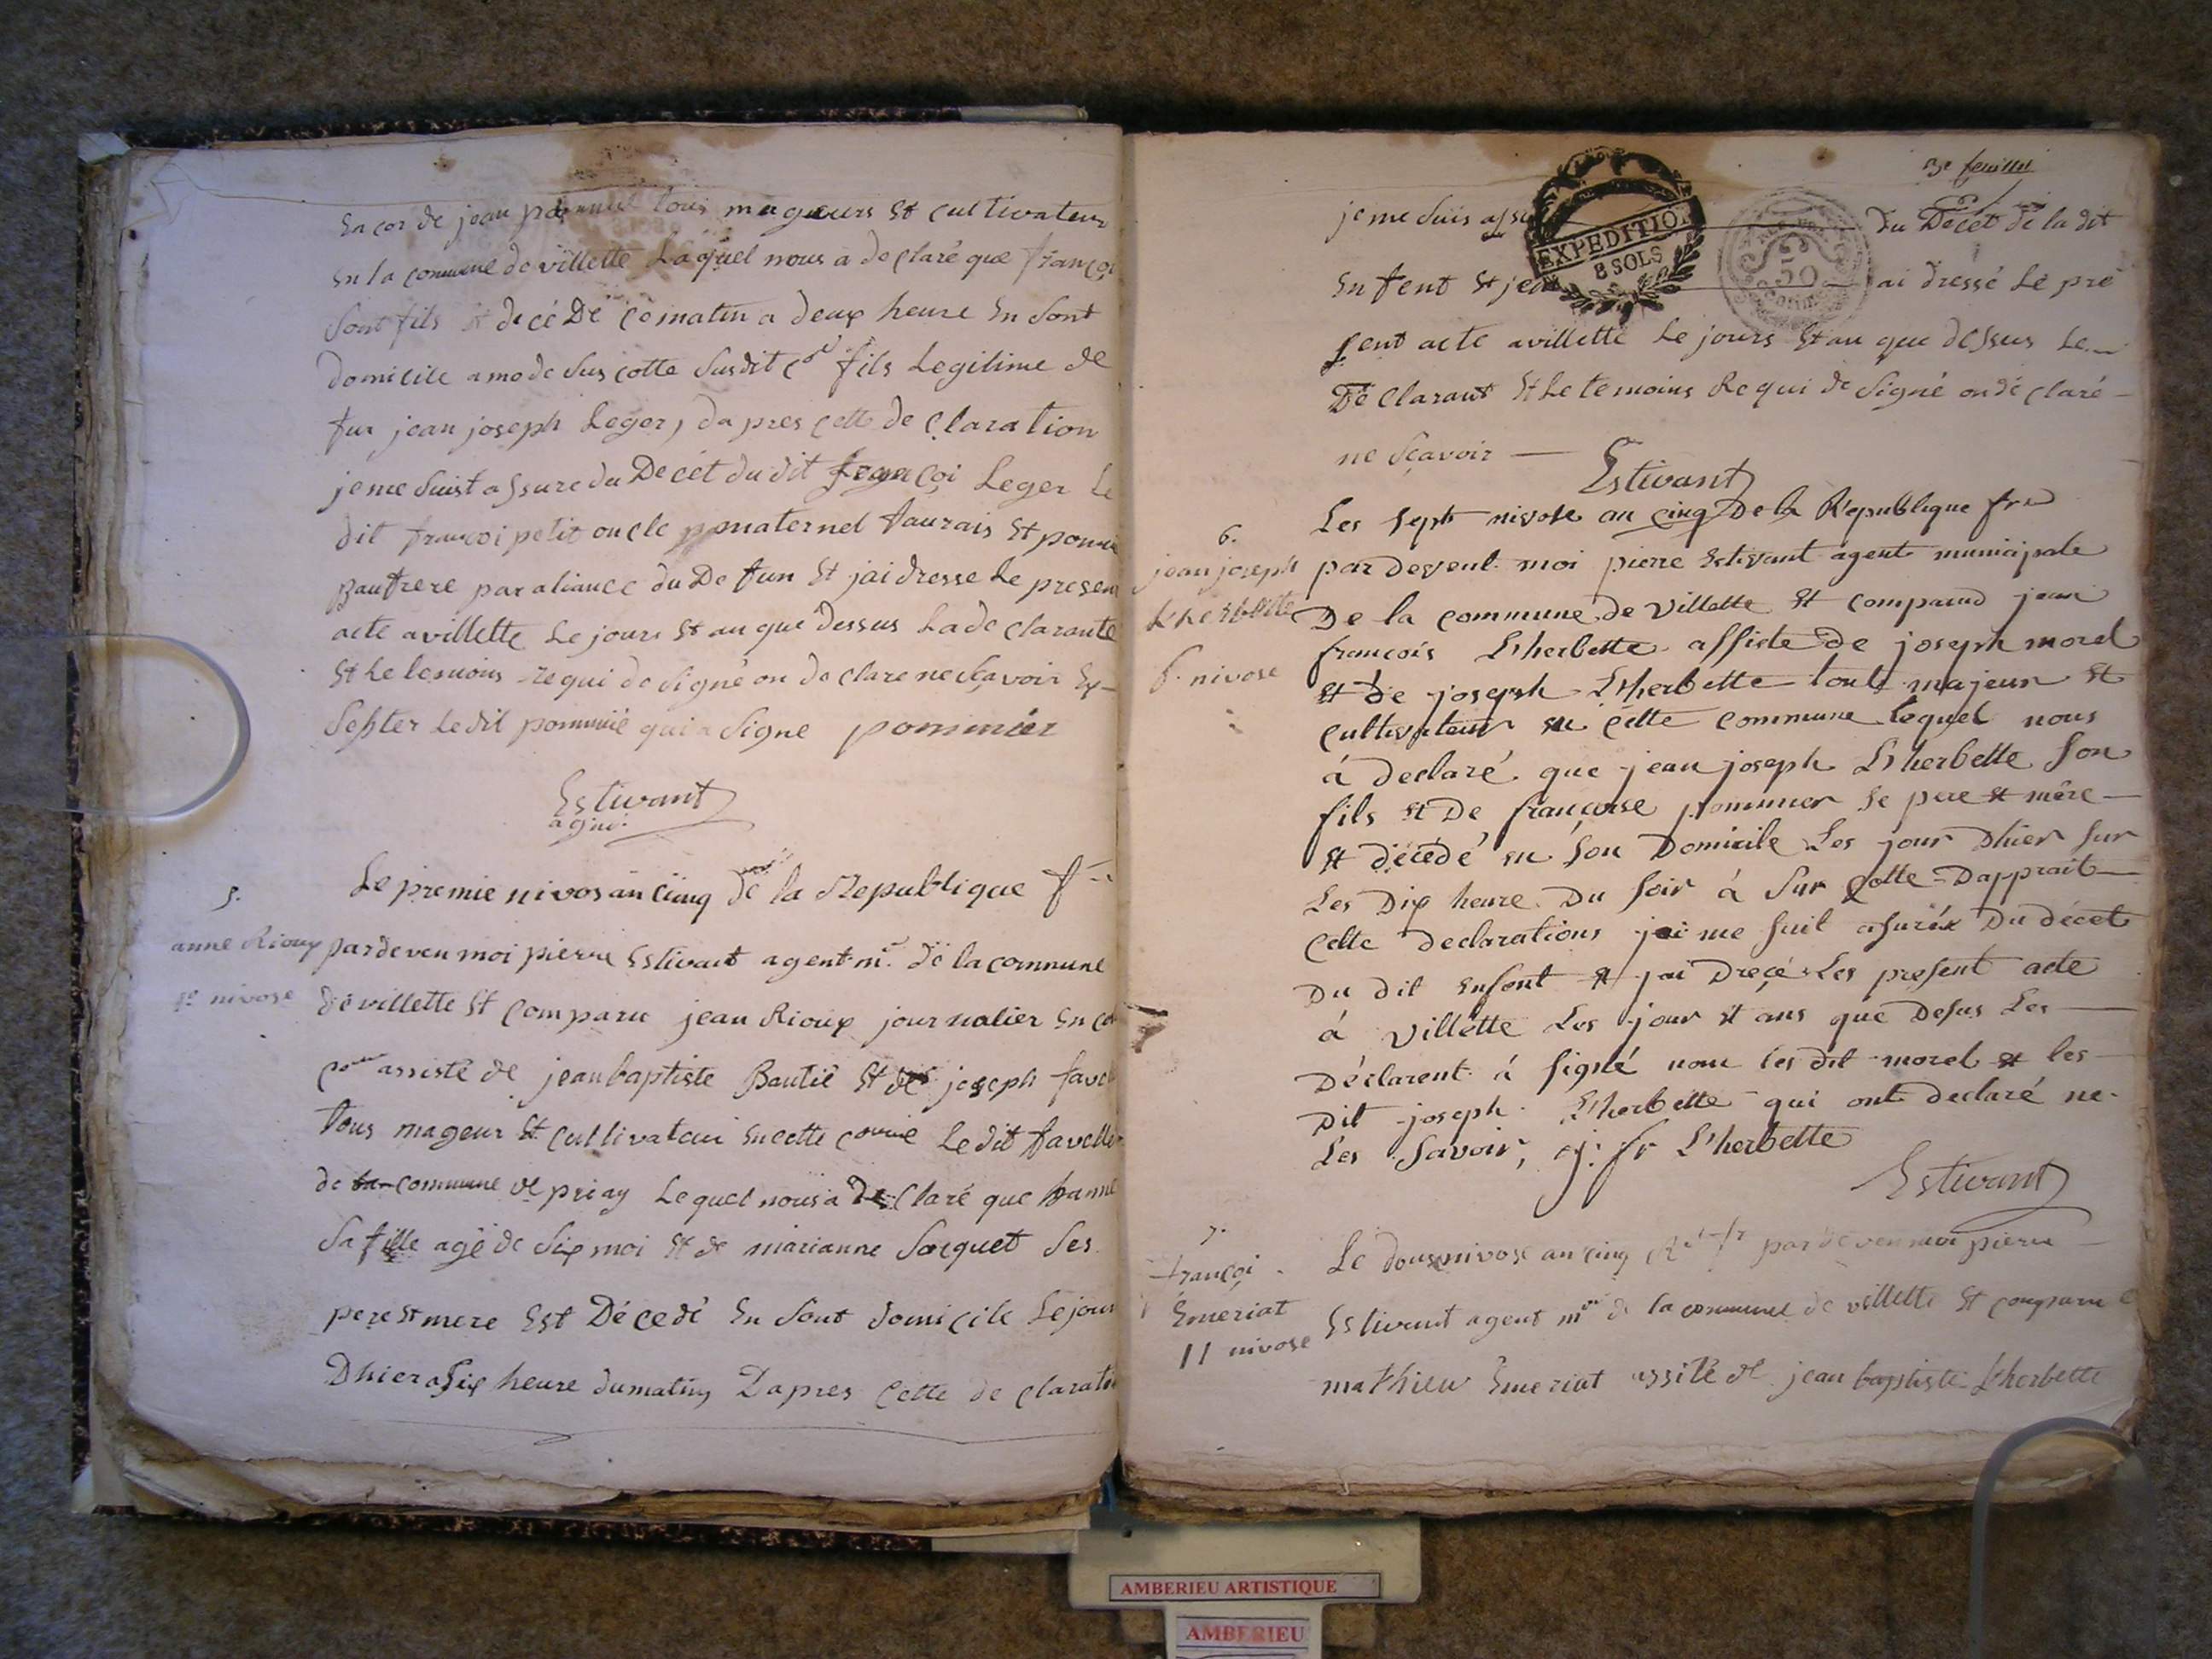 En cor de jean tous mageurs Et cultivateur
En la commune de villette Laquel nous a declaré que françoi
Sont fils Et decéDé ce matin a deux heure En Sont
domicile a mode Sus cotte Susdit fils Legitime de
fur jean joseph Leger, da pres cette de claration
je me Suist assure du Décét du dit françoi Leger Le
dit françoi petit oncle maternel
Baufrere par aliance du Defun Et jai dresse Le presen
acte a villette Le jours Et an que dessus La de clarante
Et Le temoins requi de Signé on de clare ne Sçavoir Ex-
Septer Le dit pommié qui a Signe pommier
Estivant
agm.
5.
anne Rioux
1er nivose
Le premie nivos an Cinq de la Republique f
par deven moi pierre Estivant agent m. de la commune
de villette Et Comparu jean Rioux journalier En
assisté de jean baptiste Bautié Et de joseph favel
tous mageur Et Cultivateur En cette Le dit favelle
de commune de priay Lequel nous a Declaré que hanne
Sa fille agé de Six moi Et de marianne Socquet Ses
pere et mere Est Décedé En Sont domicile Le jour
Dhier a Six heure du matin, Dapres Cette de claratio
3e feuillet
je me Suis assu du Décét de la dit
EXPEDITION
8 SOLS
50
Enfent Et ai dressé Le pre
sent acte a villette Le jours Et an que dessus Le
Déclarant Et Le temoins Requi de Signé on declaré
ne Sçavoir
Estivant
6.
jean joseph
L'herbette
6. nivose
Les sept nivose an cinq De la Republique fr
par devent moi pierre Estivant agent municipale
De la commune de Villette Et comparud jean
francois L'herbette assiste de joseph morel
Et de joseph L'herbette tout majeur Et
cultivateur en cette commune lequel nous
à declaré que jean joseph L'herbette Son
fils Et De françoise pommier Se pere Et mère
Et décédé en Son Domicile Les jour Dhier Sur
Les Dix heure Du Soir à Sur Cotte Dapprait
cette declarations jai me Suit asuré Du décét
Du dit enfont Et jai Dreçé Les present acte
à Villette Les jour Et ans que Desus Les
Déclarent à Signé nom les dit morel Et les
Dit joseph L'herbette qui ont declaré ne
Les Savoir, j: fr L'herbette
Estivant
7.
françoi
Emeriat
11 nivose
Le dous nivose an cinq Rs fr par deven moi pierre
Estivant agent m de la commune de villette Et comparu
mathieu Emeriat assité de jean baptiste L'herbette
AMBERIEU ARTISTIQUE
AMBERIEU